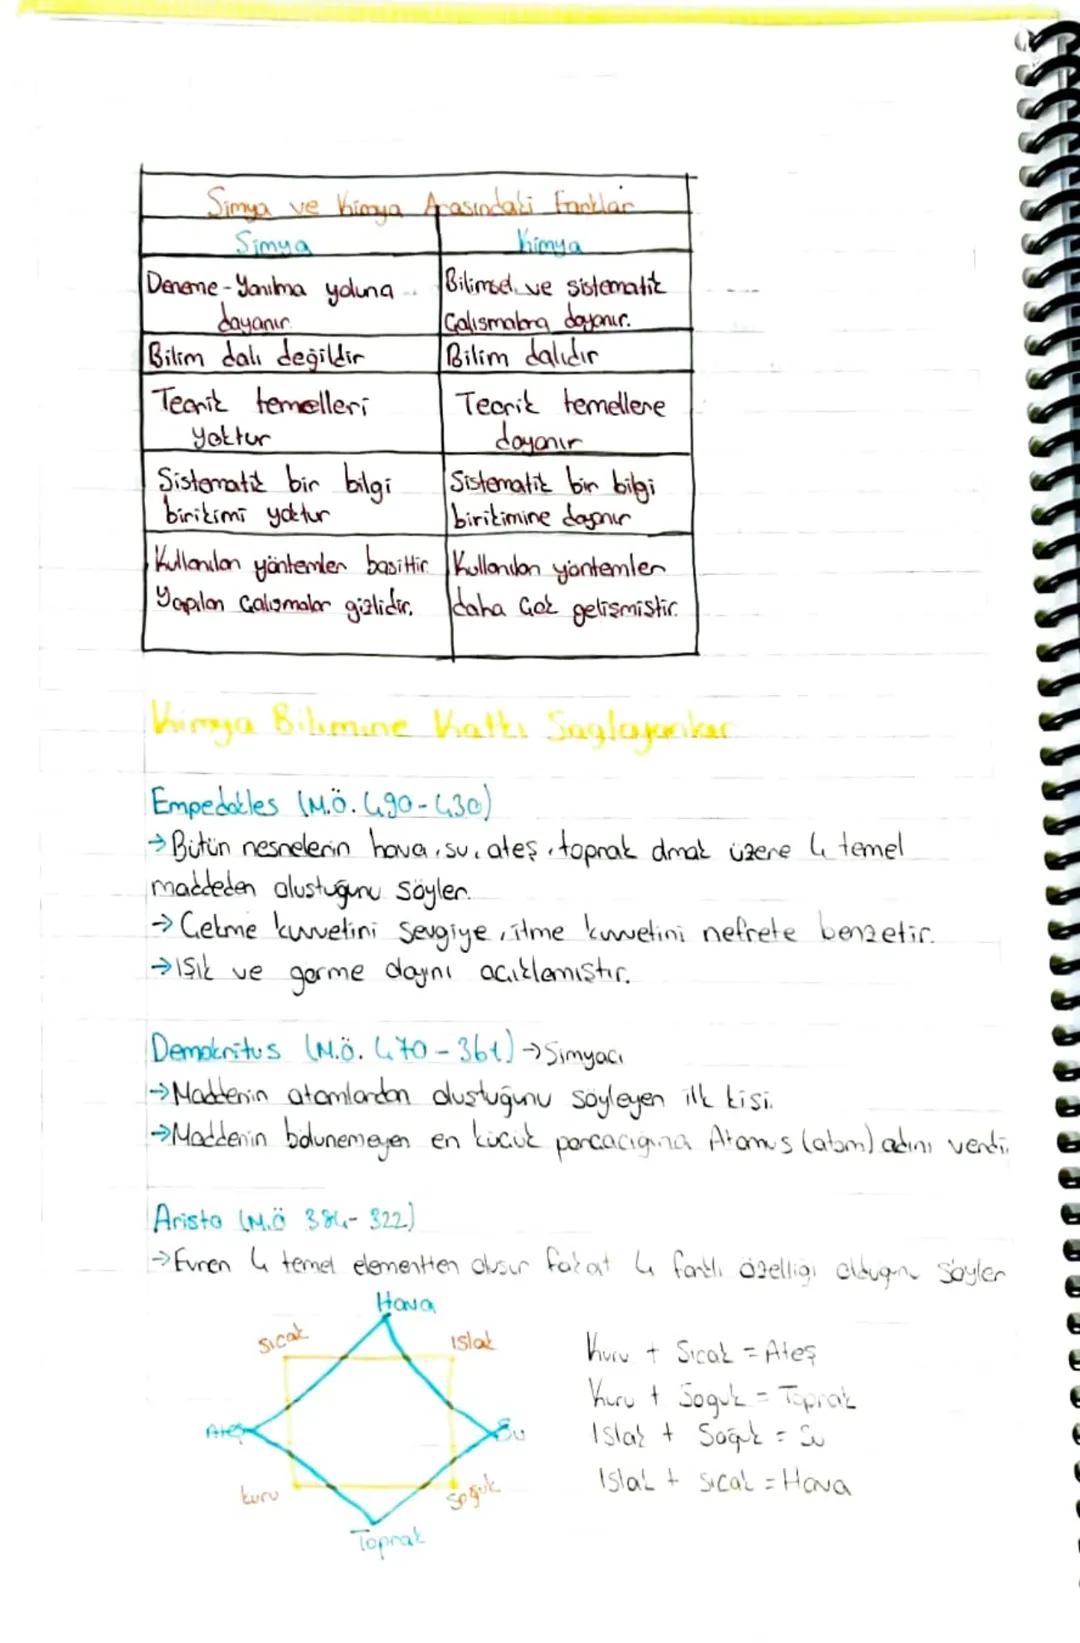 Simya ve Kimya Arasındaki Farklar
Simya Kimya
Deneme-Yanılma yoluna dayanır.
Bilimsel ve sistematik Çalışmalara dayanır.
Bilim dalı değildir
Bilim dalıdır
Teorik temelleri yoktur
Teorik temellere dayanır
Sistematik bir bilgi birikimi yoktur
Sistematik bir bilgi birikimine dayanır
Kullanılan yöntemler basittir. Yapılan Çalışmalar gizlidir.
Kullanılan yöntemler daha Çok gelişmiştir.
Kimya Bilimine Katkı Sağlayanlar
Empedokles (M.Ö. 490-430)
→Bütün nesnelerin hava, su, ateş, toprak olmak üzere 4 temel
maddeden oluştuğunu söyler.
→Çekme kuvvetini sevgiye, itme kuvvetini nefrete benzetir.
→Işık ve görme olayını açıklamıştır.
Demokritus (M.Ö. 470-361) →Simyacı
→Maddenin atomlardan oluştuğunu söyleyen ilk kişi.
→Maddenin bölünemeyen en küçük parçacığına Atomus (atom) adını verdi.
Aristo (M.Ö 384-322)
→Evren 4 temel elementten oluşur fakat 4 farklı özelliği olduğunu söyler
Hava
sıcak ıslak
Ateş Su
kuru soğuk
Toprak
Kuru + Sıcak = Ateş
Kuru + Soğuk = Toprak
Islak + Soğuk = Su
Islak + sıcak = Hava